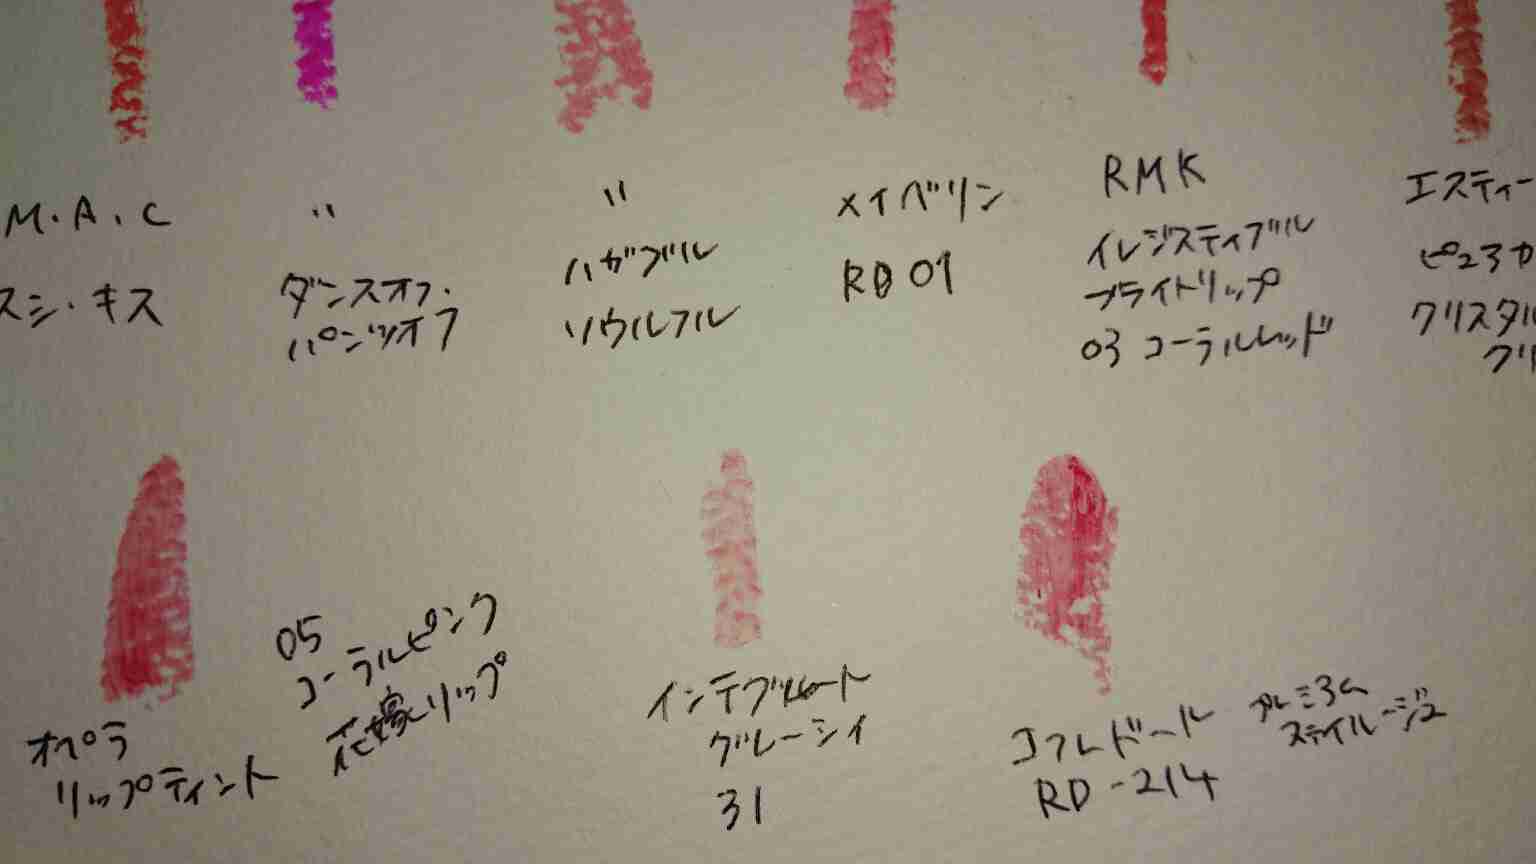 M.A.C
スシ・キス
〃
ダンスオフ・
パンツオフ
〃
ハガブル
ソウルフル
メイベリン
RD 01
RMK
イレジスティブル
ブライトリップ
03 コーラルレッド
エスティー
ピュアカ
クリスタル
クリ
オペラ
リップティント
05
コーラルピンク
花嫁リップ
インテグレート
グレーシィ
31
コフレドール
RD-214
プルミネム
ステイルージュ